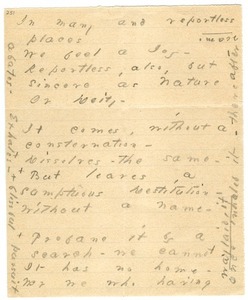 In many and reportless
places
We feel a Joy -
Reportless, also, but
sincere as Nature
Or Deity -
It comes, without a
consternation -
Dissolves - the same -
But leaves a
sumptuous Destitution
Without a name -
Profane it by a
search - we cannot
It has no home -
Nor we who having
waylaid it
inhaled it